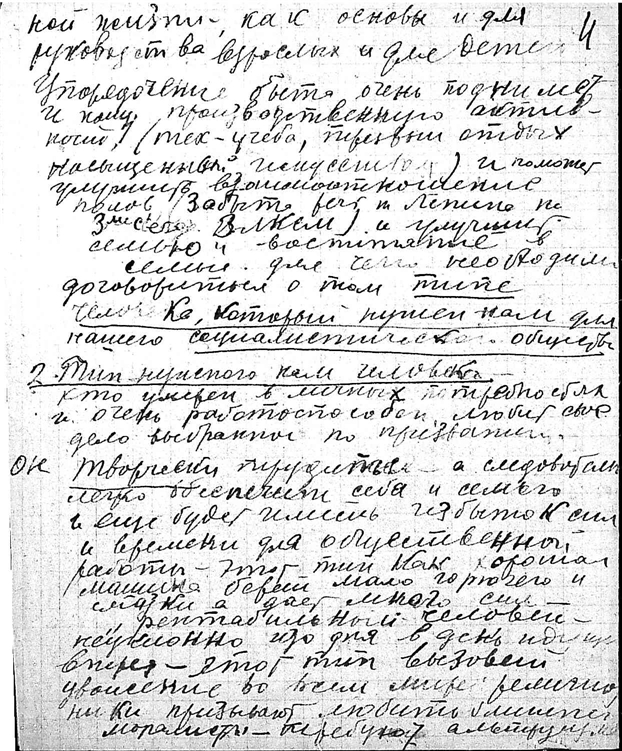 ной жизни, как основы и для
руководства взрослых и для детей 4
Упорядочение быта очень поднимет
и нашу производственную актив-
ность (тех-учеба, отдых
насыщенный искусством) и поможет
улучшить взаимоотношение
полов (забыта речь Ленина на
3м съезде ВЛКСМ) и улучшит
семью и воспитание в
семье. для чего необходимо
договориться о том типе
человека, который нужен нам для
нашего социалистического общества
2 Тип нужного нам человека
кто умерен в личных потребностях
и очень работоспособен, любит свое
дело выбранное по призванию.
Он творчески трудится а следовательно
легко обеспечит себя и семью
и еще будет иметь избыток сил
и времени для общественной
работы - этот тип как хорошая
машина берет мало горючего и
смазки а дает много сил
рентабельный человек -
неуклонно изо дня в день идущий
вперед - этот тип вызовет
уважение во всем мире религиоз
ники призывают любить ближнего
моралисты - требуют альтруизма